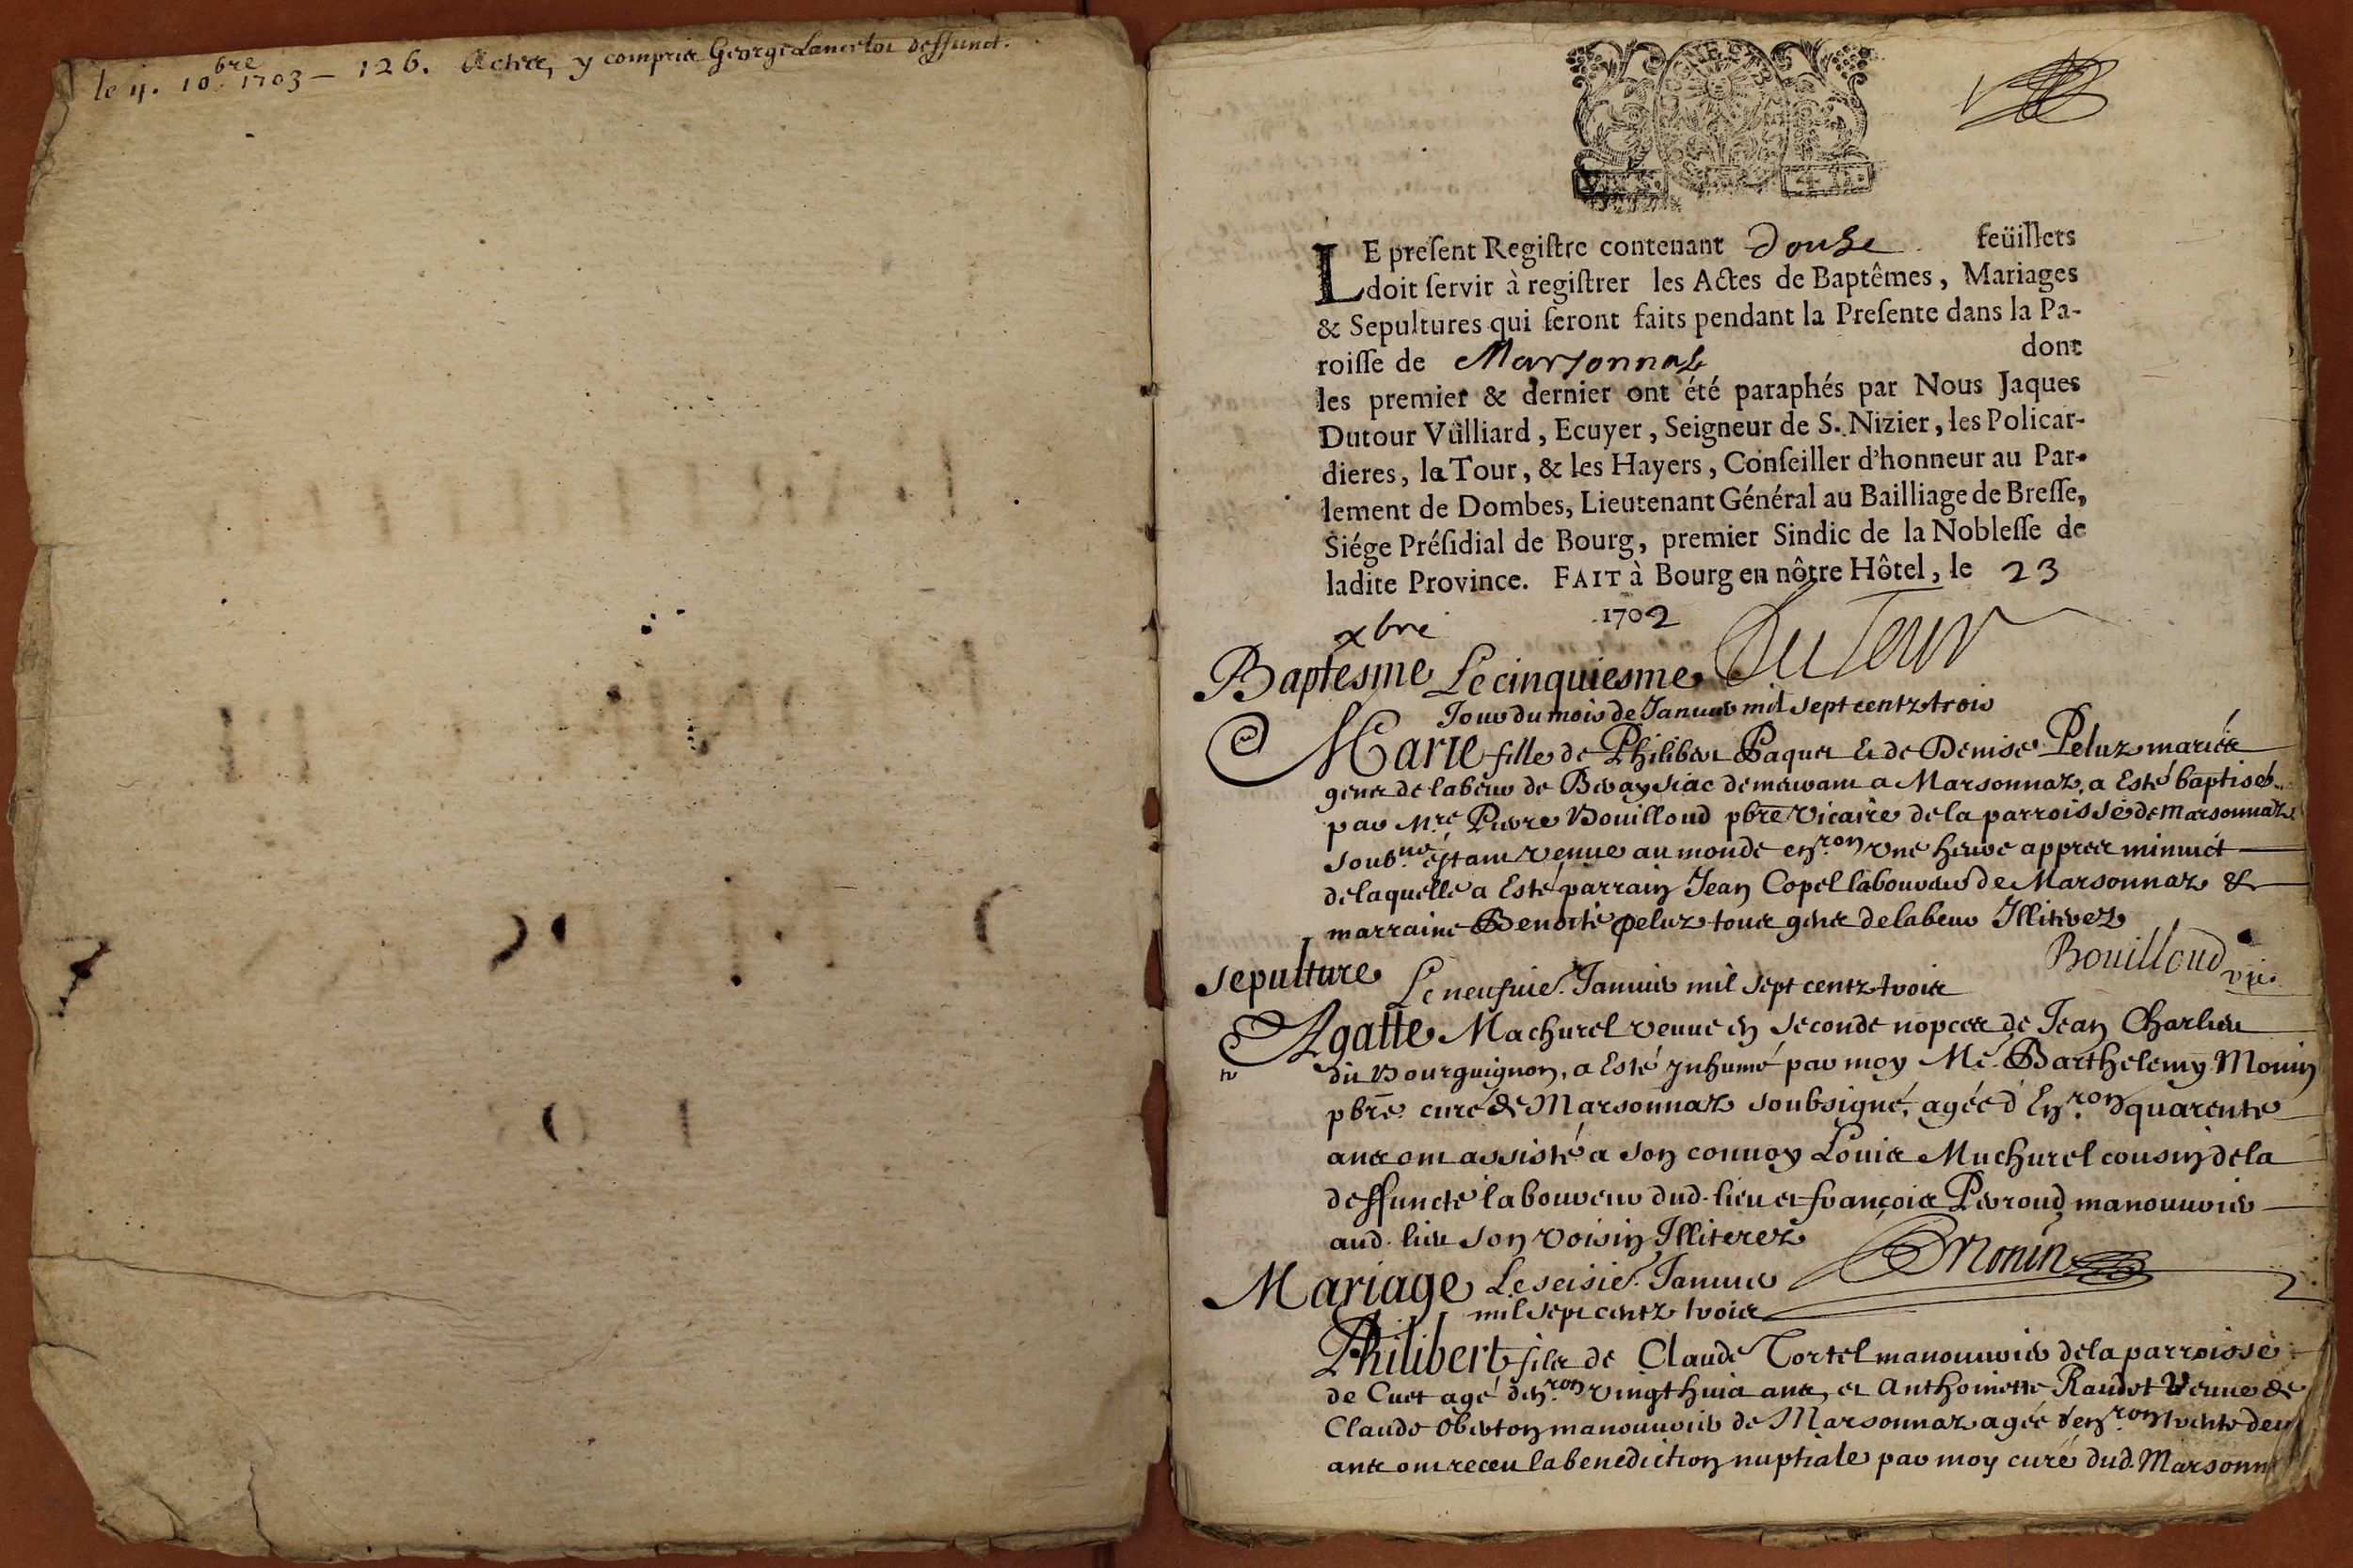 le 4. 10.bre 1703 — 126. Actes, y compris George deffunct.
LE preſent Regiſtre contenant douze feüillets
doit ſervir à regiſtrer les Actes de Baptêmes, Mariages
& Sepultures qui ſeront faits pendant la Preſente dans la Pa-
roiſſe de Marsonnas dont
les premier & dernier ont été paraphés par Nous Jaques
Dutour Vülliard, Ecuyer, Seigneur de S. Nizier, les Policar-
dieres, la Tour, & les Hayers, Conſeiller d'honneur au Par-
lement de Dombes, Lieutenant Général au Bailliage de Breſſe,
Siége Préſidial de Bourg, premier Sindic de la Nobleſſe de
ladite Province. FAIT à Bourg en nôtre Hôtel, le 23
xbre 1702 Du Tour
Baptesme Le cinquiesme
Jour du mois de Januier mil sept centz trois
Marie fille de Philiber Paquet & de Denise Peluz mariés
gens de labeur de Beraysiac demeurant a Marsonnaz, a Esté baptisée
par Mre. Pierre Bouilloud pbre Vicaire de la parroisse de Marsonnaz
soubné. estant venue au monde en.ron vne heure appres minuict
de laquelle a Esté parrain Jean Copel laboureur de Marsonnaz &
marraine Benoite peluz tous gens de labeur Illiterez
Bouilloud vic.
sepulture Le neufuie. Januier mil sept centz trois
Agatte Machurel venue en seconde nopces de Jean Charlieu
dit Bourguignon, a Esté Inhumé par moy Me. Barthelemy Monin
pbre. curé de Marsonnaz soubsigné, agée d'En.ron quarente
ans ont assisté a son conuoy Louis Muchurel cousin de la
deffuncte laboureur dud. lieu et francois Perroud manouurier
aud. lieu son voisin Illiterez
BMonin
Mariage Le seisie. Januier
mil sept centz trois
Philibert fils de Claude Tortel manouurier de la parroisse
de Cuet agé d'en.ron vingt huit ans, et Anthoinette Raudet Veuue de
Claude Oberton manouurier de Marsonnaz agée d'en.ron trente deux
ans ont receu la benediction nuptiale par moy curé dud. Marsonn